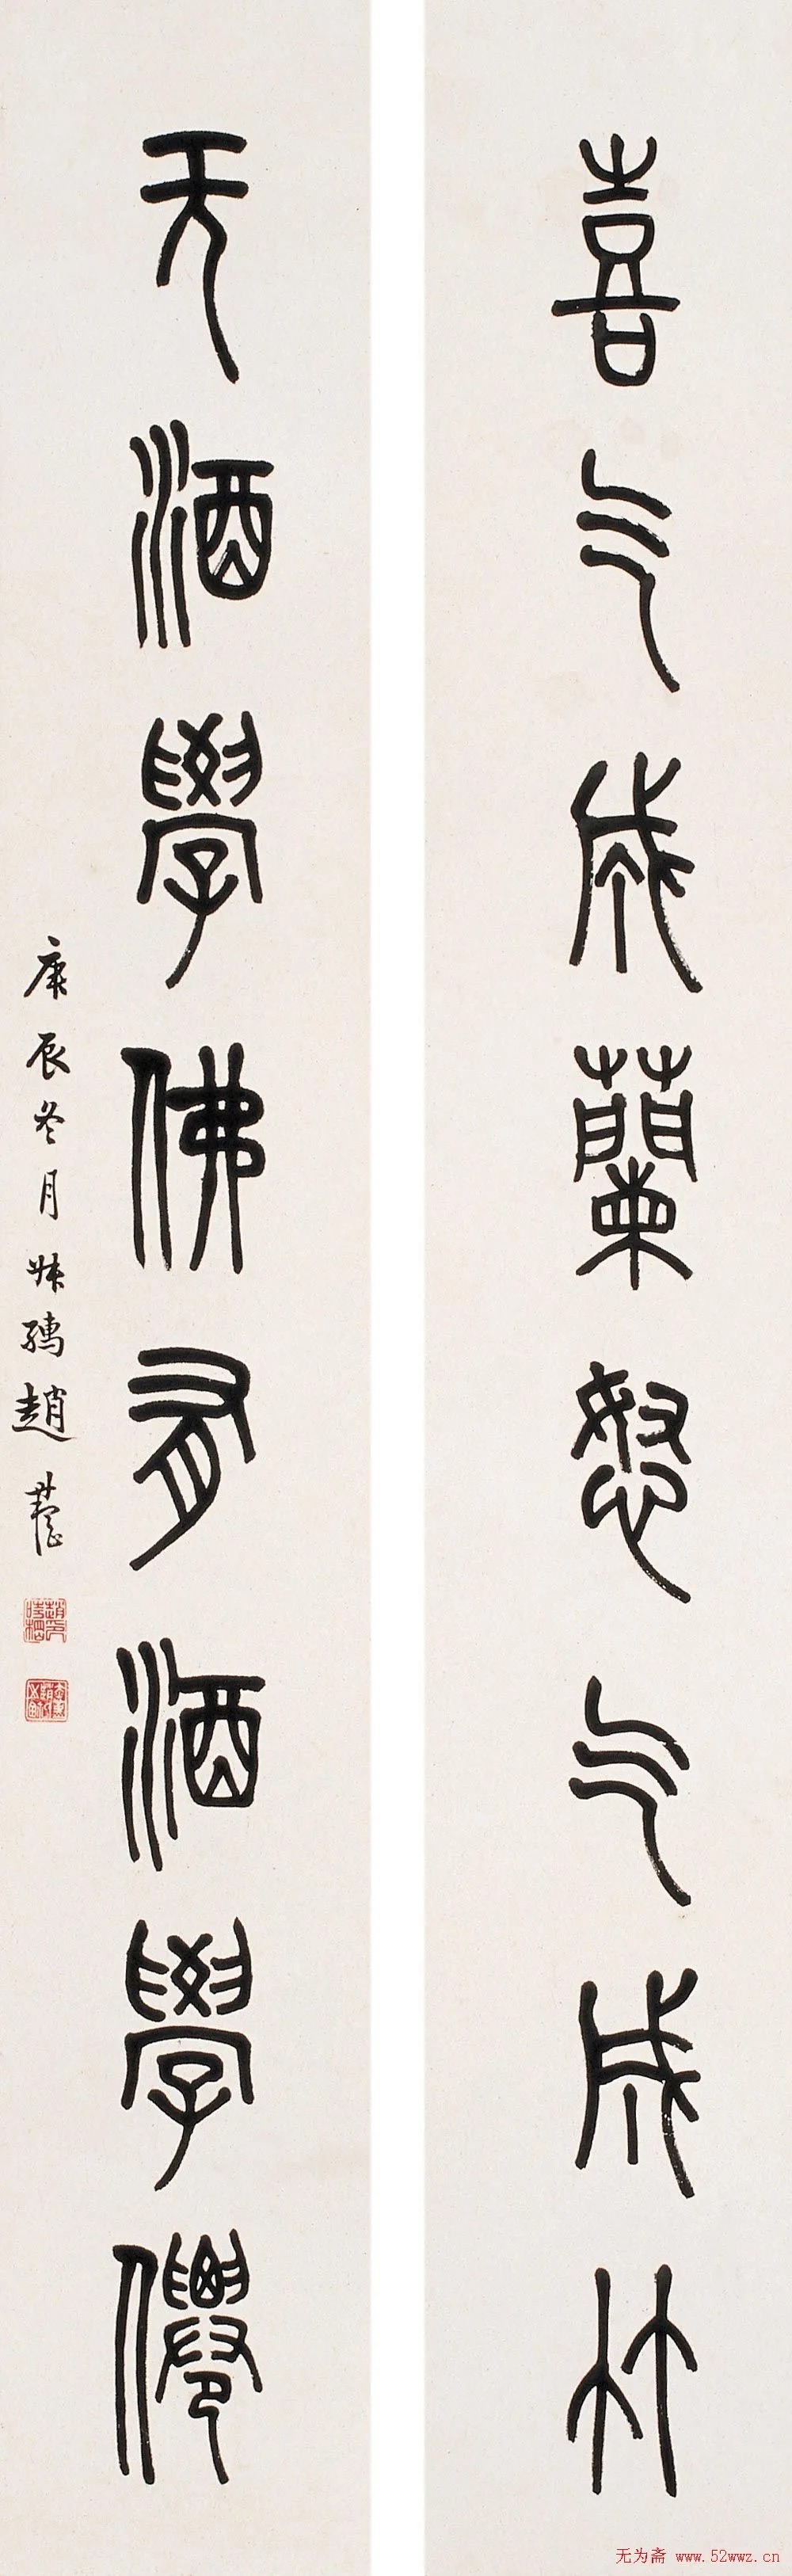 喜气成蘭怒气成竹
无酒學佛有酒學僊
庚辰冬月叔孺趙時棡
无为斋 www.52wwz.cn